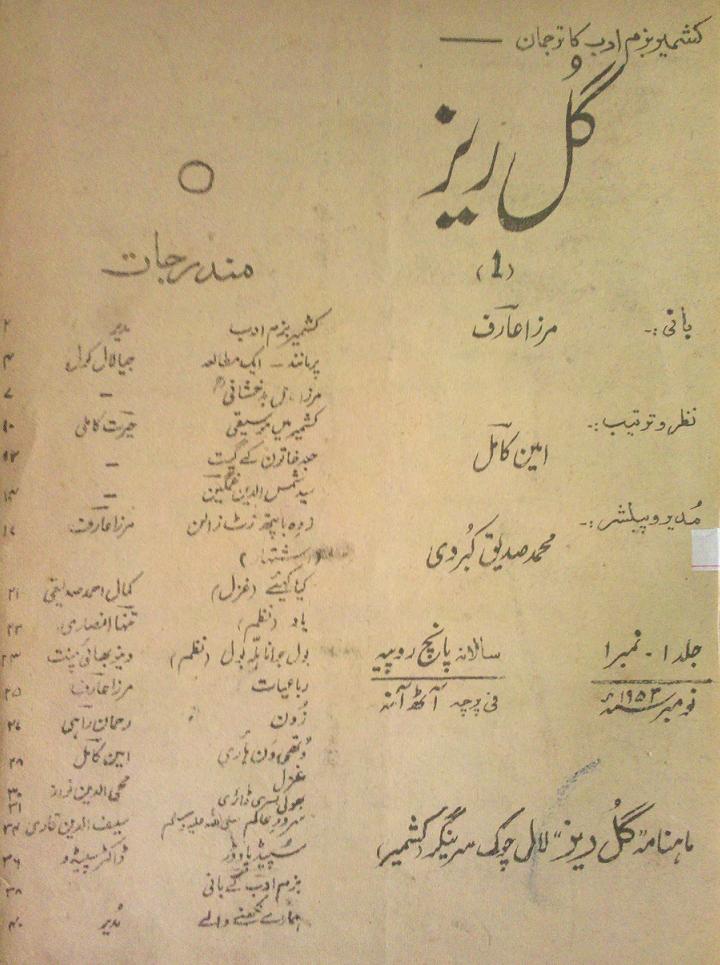 کشمیر بزم ادب کا ترجمان
گُل ریز
(1)
بانی:-
مرزا عارف
نظر و ترتیب:-
امین کامل
مُدیر و پبلشر:-
محمد صدیق کبروی
جلد ۱ - نمبر ۱
سالانہ پانچ روپیہ
نومبر سنہ ۱۹۵۲ء
فی پرچہ آٹھ آنہ
ماہنامہ "گُل ریز" لال چوک سرینگر (کشمیر)
مندرجات
کشمیر بزم ادب مدیر ۲
پرمانند - ایک مطالعہ جیالال کول ۴
مرزا بدخشانی - ۷
کشمیر میں موسیقی حیرت کاملی ۱۰
حبہ خاتون کے گیت - ۱۲
سید شمس الدین غمگین - ۱۴
مرزا عارف ۱۷
(اشتہار)
کیا کہیئے (غزل) کمال احمد صدیقی ۲۱
یاد (نظم) تنہا انصاری ۲۲
بول جوانا ہلّہ بول (نظم) ۲۳
رباعیات مرزا عارف ۲۵
زُون رحمان راہی ۲۶
امین کامل ۲۸
غزل محی الدین نواز ۳۰
۳۱
سرورِ عالم صلی اللہ علیہ وسلم سیف الدین قاری ۳۴
ڈاکٹر ۳۶
بزم ادب کے بانی ۳۸
ہمارے لکھنے والے مُدیر ۴۰